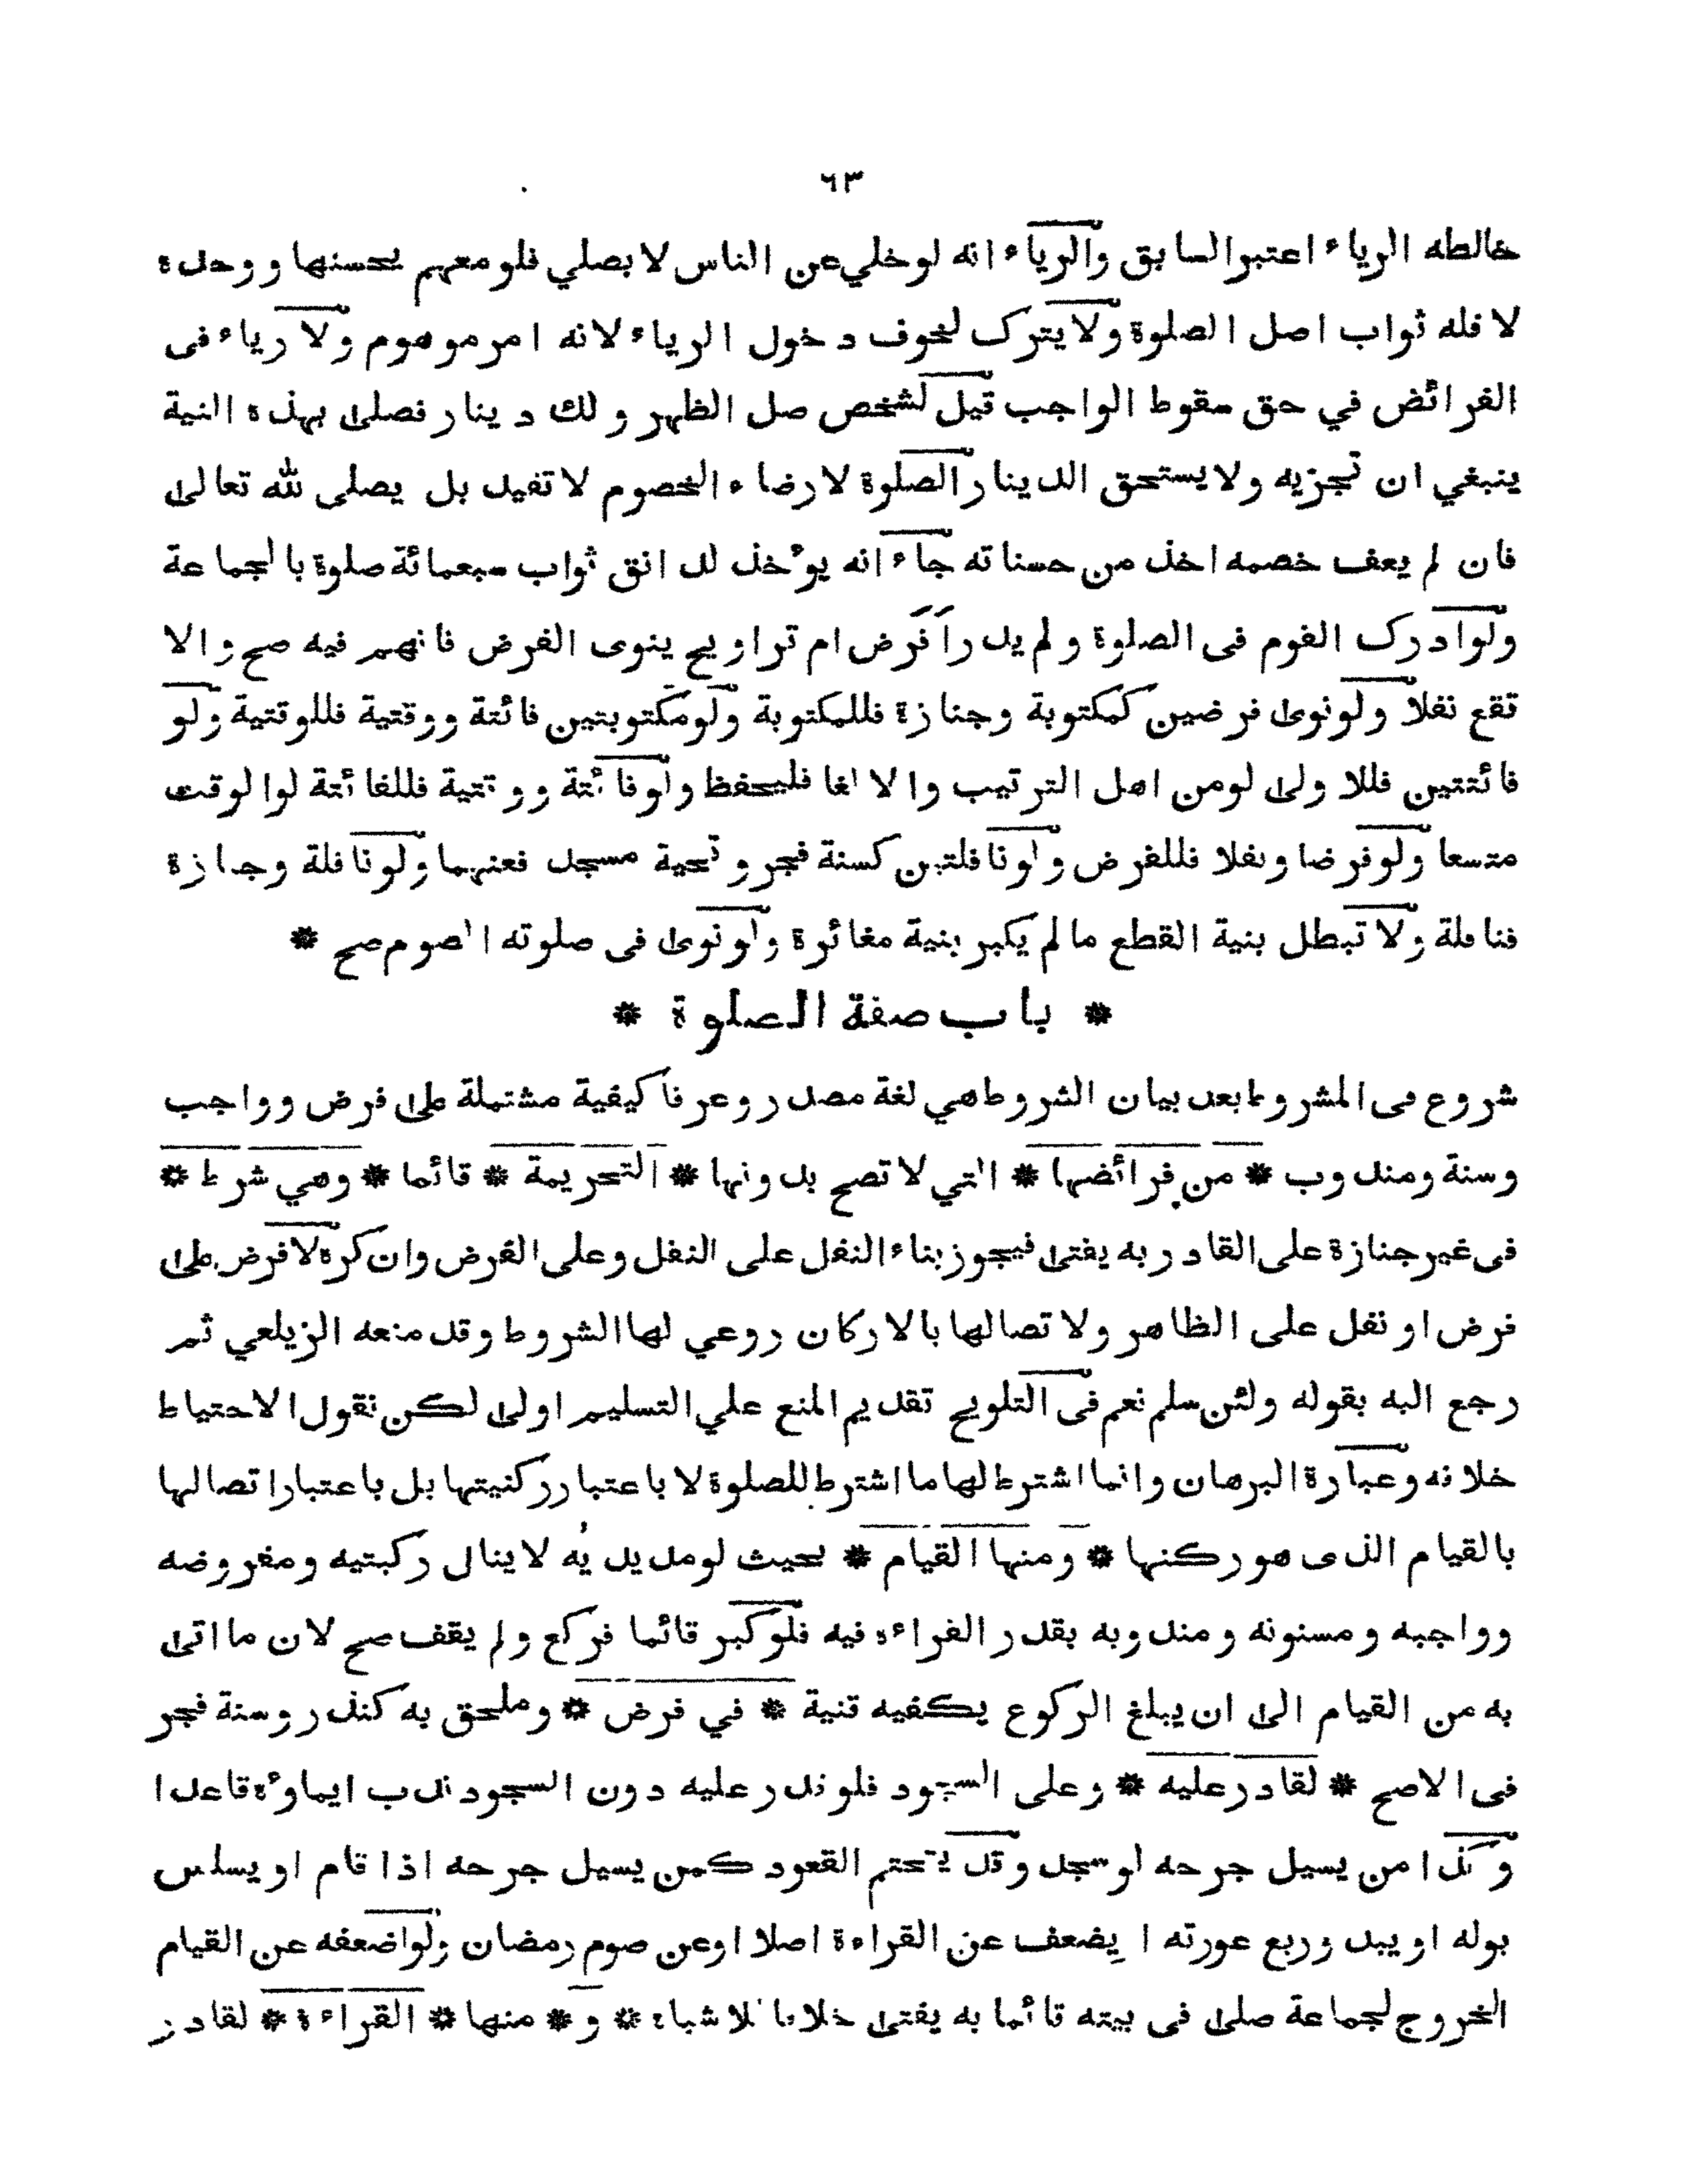 ٦٣
خالطه الرياء اعتبر السابق والرياء انه لو خلي عن الناس لا يصلي فلو معهم يحسنها و وحده
لا فله ثواب اصل الصلوة ولا يترك لخوف دخول الرياء لانه امر موهوم ولا رياء فى
الفرائض في حق سقوط الواجب قيل لشخص صل الظهر و لك دينار فصلى بهذه النية
ينبغي ان تجزيه ولا يستحق الدينار الصلوة لارضاء الخصوم لا تفيد بل يصلى لله تعالى
فان لم يعف خصمه اخذ من حسناته جاء انه يؤخذ لدانق ثواب سبعمائة صلوة بالجماعة
ولو ادرك القوم فى الصلوة و لم يدر أفرض ام تراويح ينوى الفرض فانهم فيه صح و الا
تقع نفلا ولو نوى فرضين كمكتوبة وجنازة فللمكتوبة ولو مكتوبتين فائتة ووقتية فللوقتية ولو
فائتتين فللاولى لو من اهل الترتيب والا لغا فليحفظ ولو فائتة ووقتية فللفائتة لو الوقت
متسعا ولو فرضا ونفلا فللفرض ولو نافلتين كسنة فجر و تحية مسجد فعنهما ولو نافلة وجنازة
فنافلة ولا تبطل بنية القطع ما لم يكبر بنية مغائرة ولو نوى فى صلوته الصوم صح *
* باب صفة الصلوة *
شروع فى المشروط بعد بيان الشروط هي لغة مصدر وعرفا كيفية مشتملة على فرض وواجب
وسنة ومندوب * من فرائضها * التي لا تصح بدونها * التحريمة * قائما * وهي شرط *
فى غير جنازة على القادر به يفتى فيجوز بناء النفل على النفل وعلى الفرض وان كره لا فرض على
فرض او نفل على الظاهر ولا تصالها بالاركان روعي لها الشروط وقد منعه الزيلعي ثم
رجع اليه بقوله ولئن سلم نعم فى التلويح تقديم المنع علي التسليم اولى لكن نقول الاحتياط
خلافه وعبارة البرهان وانما اشترط لها ما اشترط للصلوة لا باعتبار ركنيتها بل باعتبار اتصالها
بالقيام الذى هو ركنها * ومنها القيام * بحيث لو مد يديه لا ينال ركبتيه ومفروضه
وواجبه ومسنونه ومندوبه بقدر القراءه فيه فلو كبر قائما فركع ولم يقف صح لان ما اتى
به من القيام الى ان يبلغ الركوع يكفيه قنية * في فرض * وملحق به كنذر وسنة فجر
فى الاصح * لقادر عليه * وعلى السجود فلو قدر عليه دون السجود ندب ايماؤه قاعدا
وكذا من يسيل جرحه لو سجد وقد يتحتم القعود كمن يسيل جرحه اذا قام او يسلس
بوله او يبدو ربع عورته ا يضعف عن القراءة اصلا او عن صوم رمضان ولو اضعفه عن القيام
الخروج لجماعة صلى فى بيته قائما به يفتى خلافا للاشباه * و * منها * القراءة * لقادر